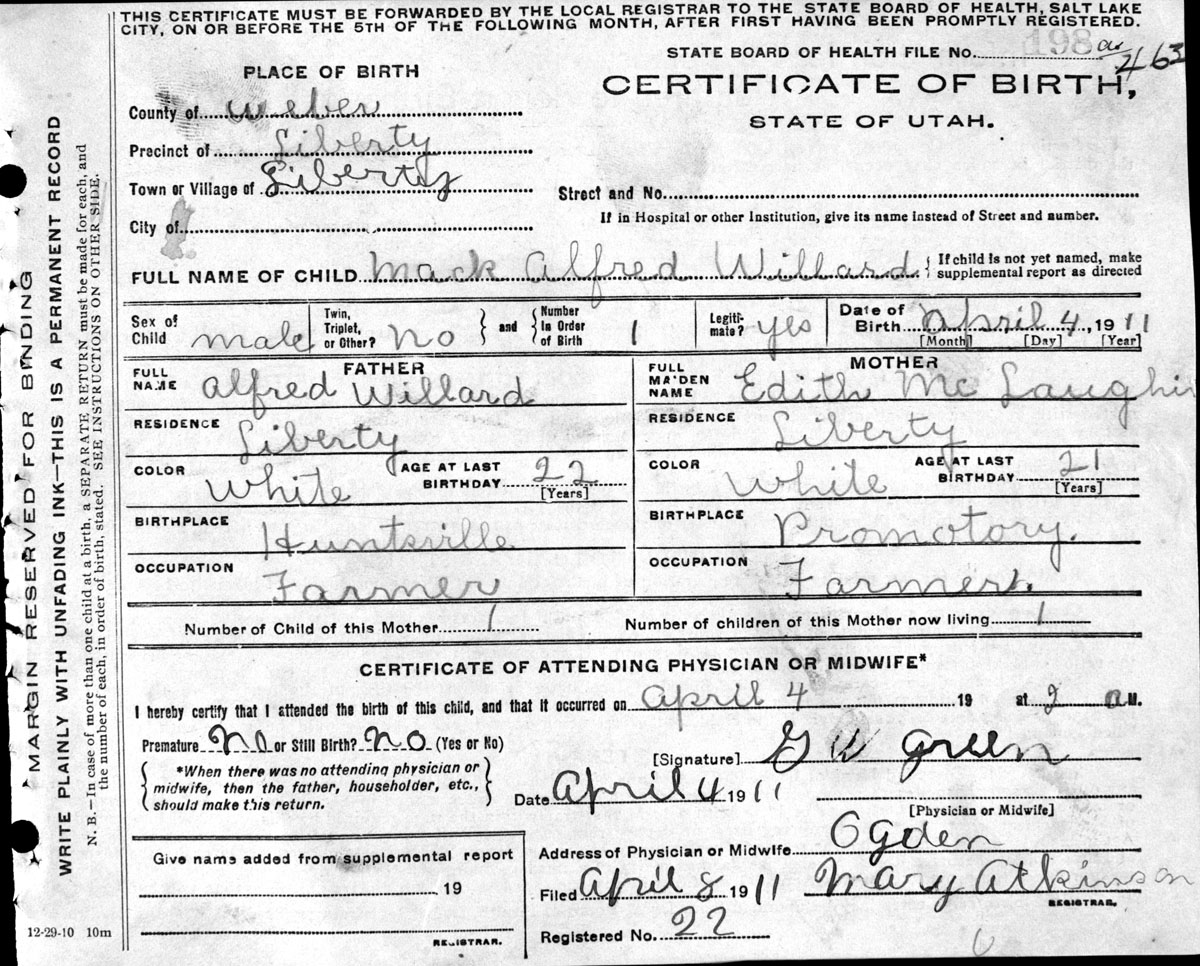 THIS CERTIFICATE MUST BE FORWARDED BY THE LOCAL REGISTRAR TO THE STATE BOARD OF HEALTH, SALT LAKE
CITY, ON OR BEFORE THE 5TH OF THE FOLLOWING MONTH, AFTER FIRST HAVING BEEN PROMPTLY REGISTERED.
STATE BOARD OF HEALTH FILE No. 198 463
PLACE OF BIRTH
CERTIFICATE OF BIRTH,
STATE OF UTAH.
County of Weber
Precinct of Liberty
Town or Village of Liberty
Street and No.
If in Hospital or other Institution, give its name instead of Street and number.
City of
FULL NAME OF CHILD Mack Alfred Willard { If child is not yet named, make
supplemental report as directed
Sex of Child male Twin, Triplet, or Other? No } and { Number In Order of Birth 1 Legiti-mate? yes Date of Birth April 4, 1911
[Month] [Day] [Year]
FATHER
FULL NAME Alfred Willard
RESIDENCE Liberty
COLOR White AGE AT LAST BIRTHDAY 22 [Years]
BIRTHPLACE Huntsville
OCCUPATION Farmer
MOTHER
FULL MAIDEN NAME Edith Mc Laughin
RESIDENCE Liberty
COLOR White AGE AT LAST BIRTHDAY 21 [Years]
BIRTHPLACE Promotory.
OCCUPATION Farmer
Number of Child of this Mother 1 Number of children of this Mother now living 1
CERTIFICATE OF ATTENDING PHYSICIAN OR MIDWIFE*
I hereby certify that I attended the birth of this child, and that it occurred on April 4 19 at 2 a M.
Premature No or Still Birth? No (Yes or No)
[Signature] G W Green
{ *When there was no attending physician or
midwife, then the father, householder, etc.,
should make this return. }
Date April 4 1911
[Physician or Midwife]
Address of Physician or Midwife Ogden
Give name added from supplemental report
19
REGISTRAR.
Filed April 8 1911 Mary Atkinson
REGISTRAR.
Registered No. 22
12-29-10 10m
MARGIN RESERVED FOR BINDING
WRITE PLAINLY WITH UNFADING INK—THIS IS A PERMANENT RECORD
N. B.—In case of more than one child at a birth, a SEPARATE RETURN must be made for each, and
the number of each, in order of birth, stated. SEE INSTRUCTIONS ON OTHER SIDE.